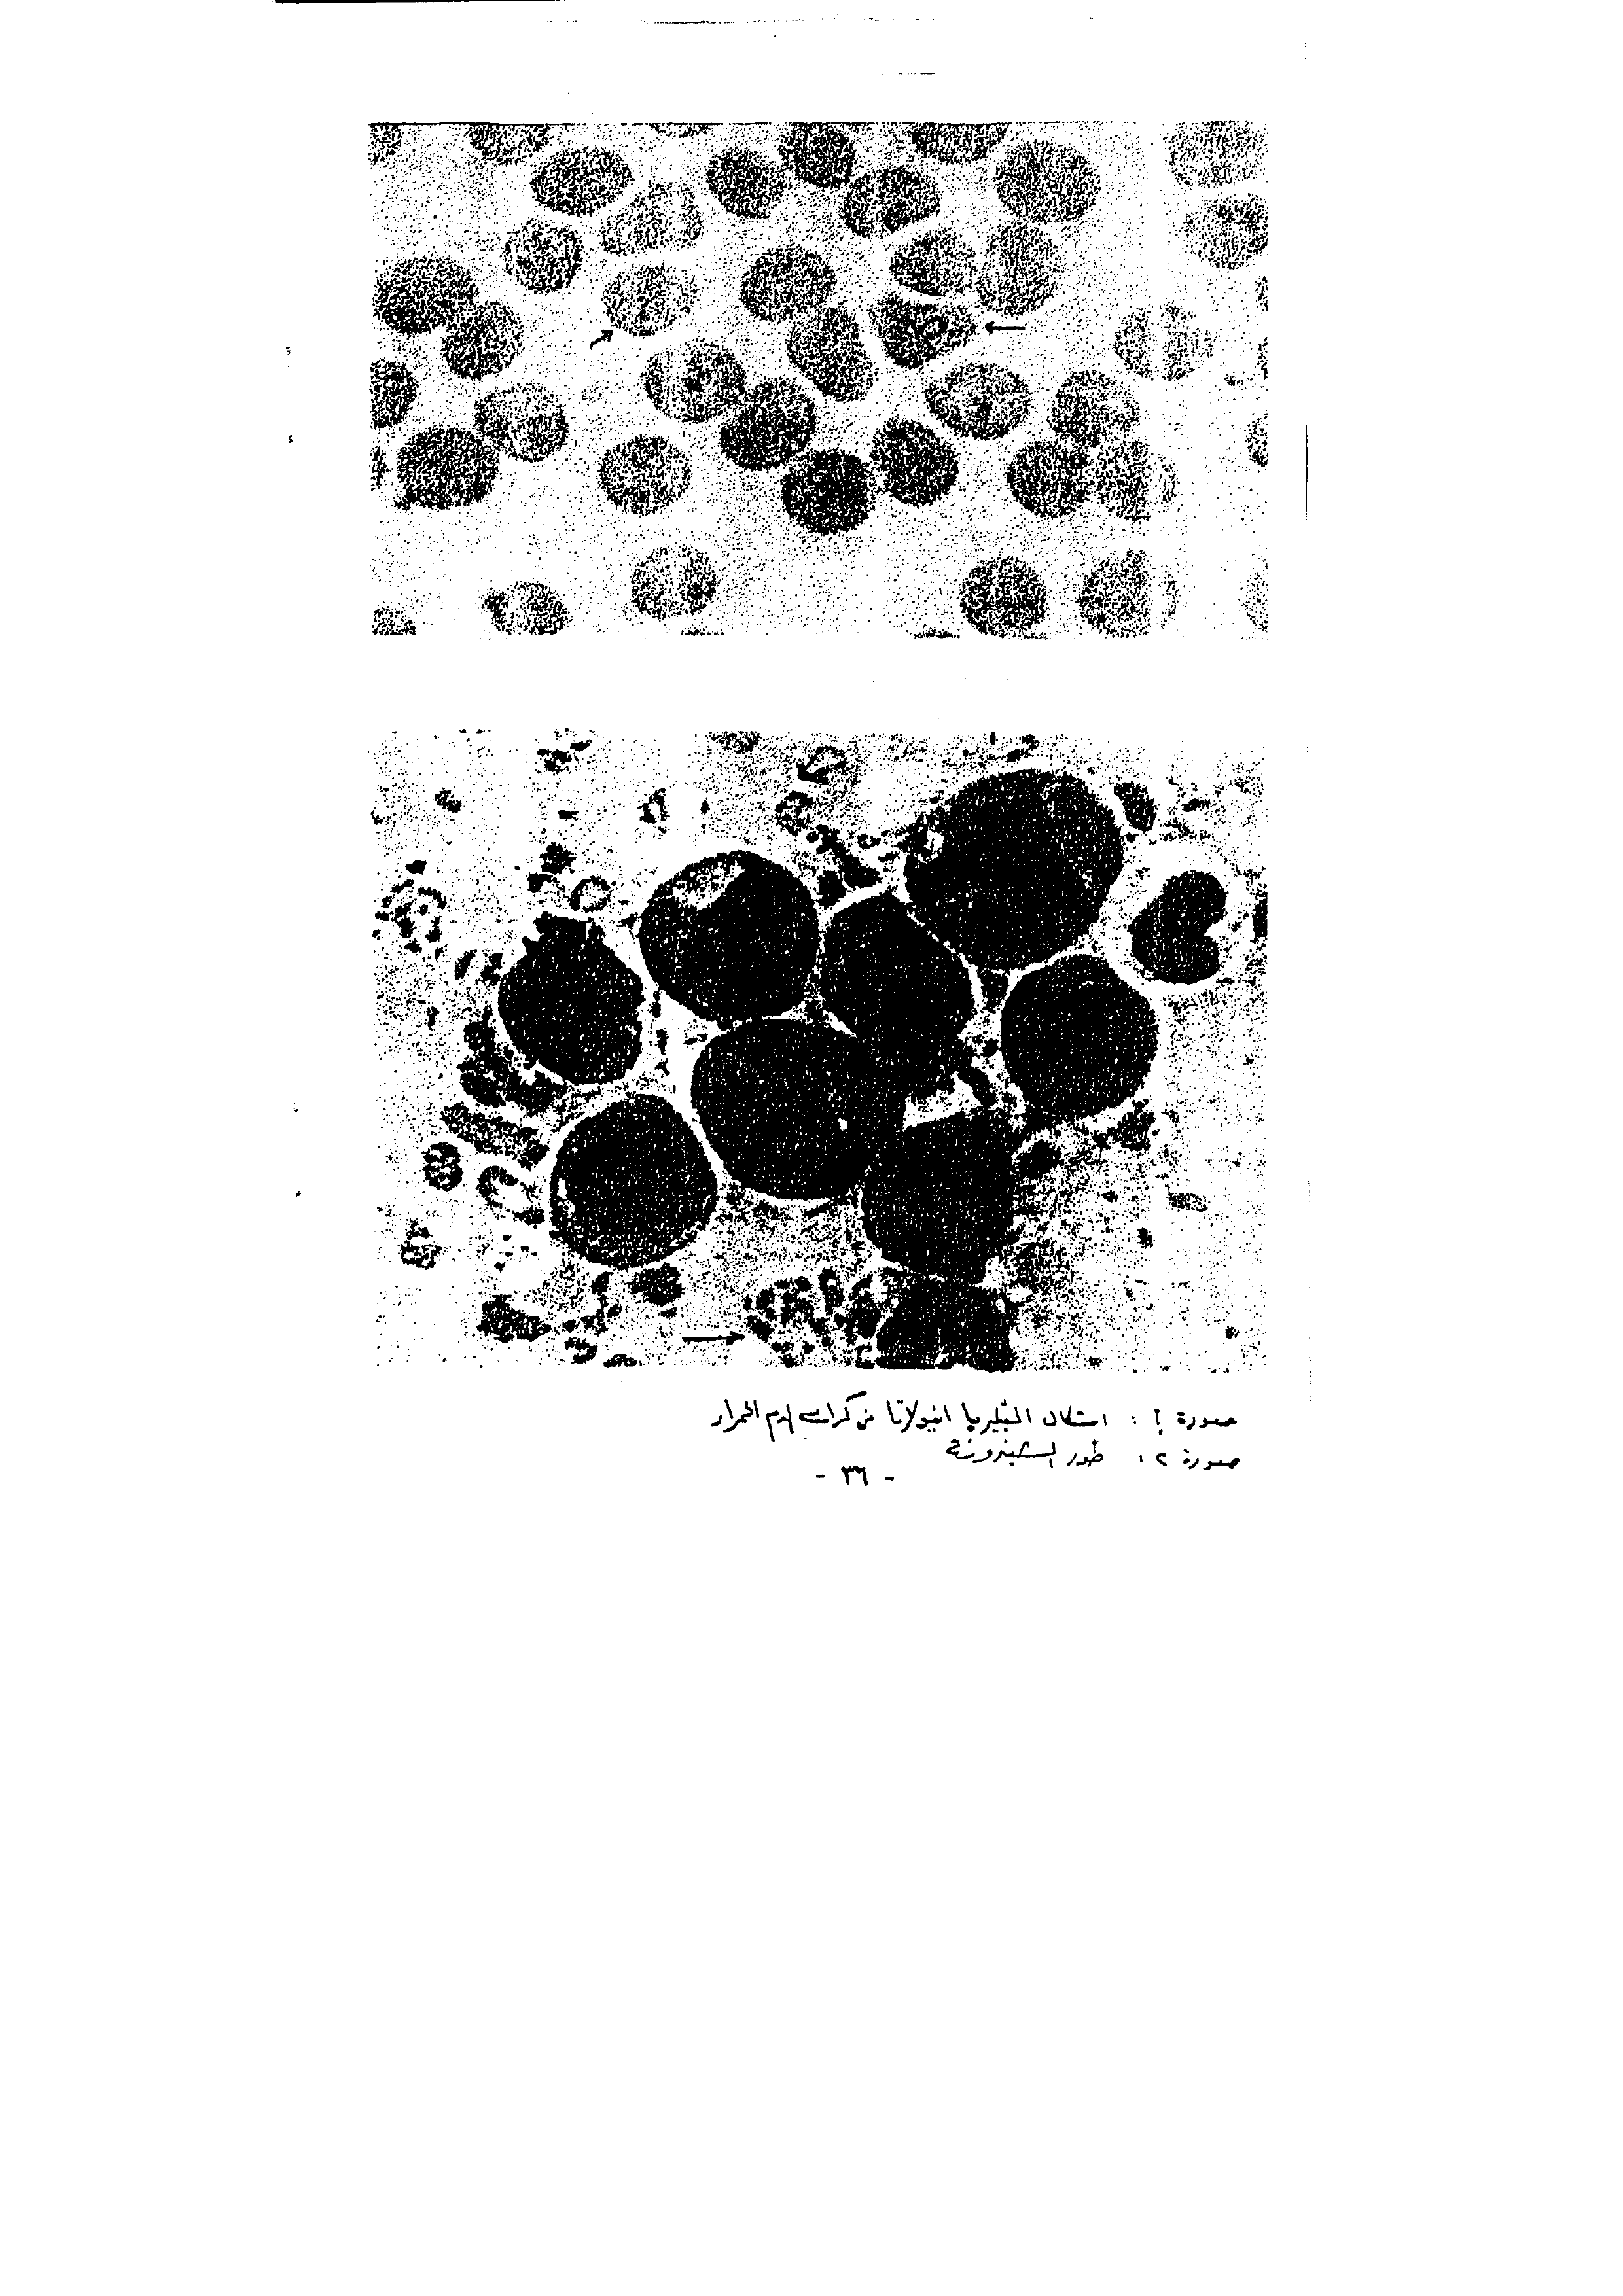 صورة ١ : اشكال الثيليريا انيولاتا في كرات الدم الحمراء
صورة ٢ : طور الشيزونت
- ٣٦ -